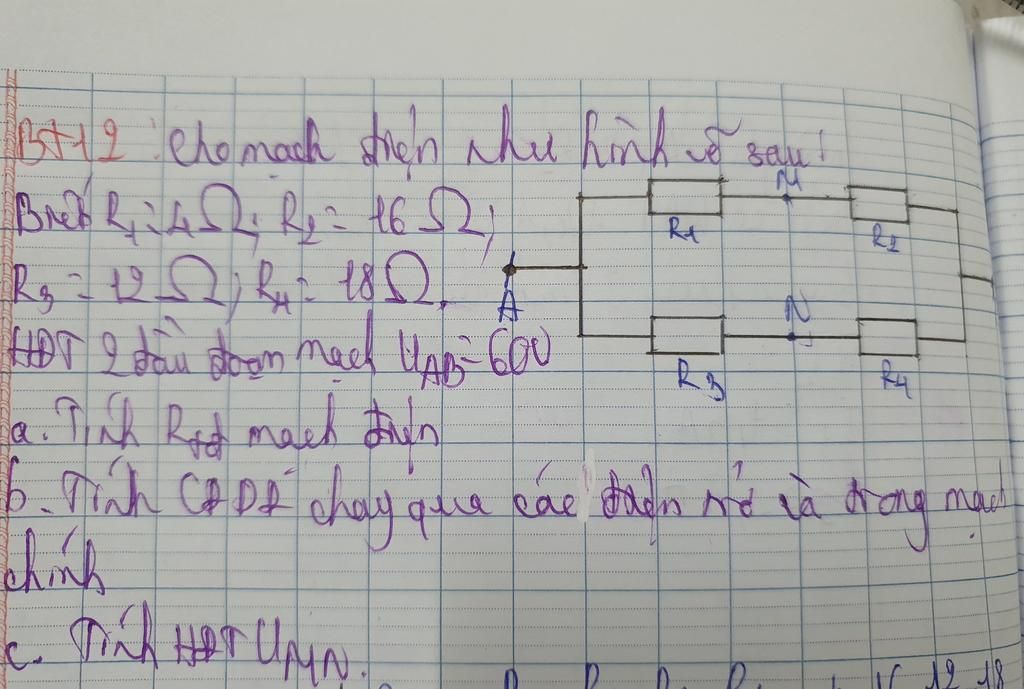 BT12: Cho mạch điện như hình vẽ sau:
Biết R1 = 4Ω; R2 = 16Ω;
R3 = 12Ω; R4 = 18Ω.
HĐT 2 đầu đoạn mạch UAB = 60V
M
R1
R2
A
N
R3
R4
a. Tính Rtđ mạch điện
b. Tính CĐDĐ chạy qua các điện trở và trong mạch
chính
c. Tính HĐT UMN.
12 18